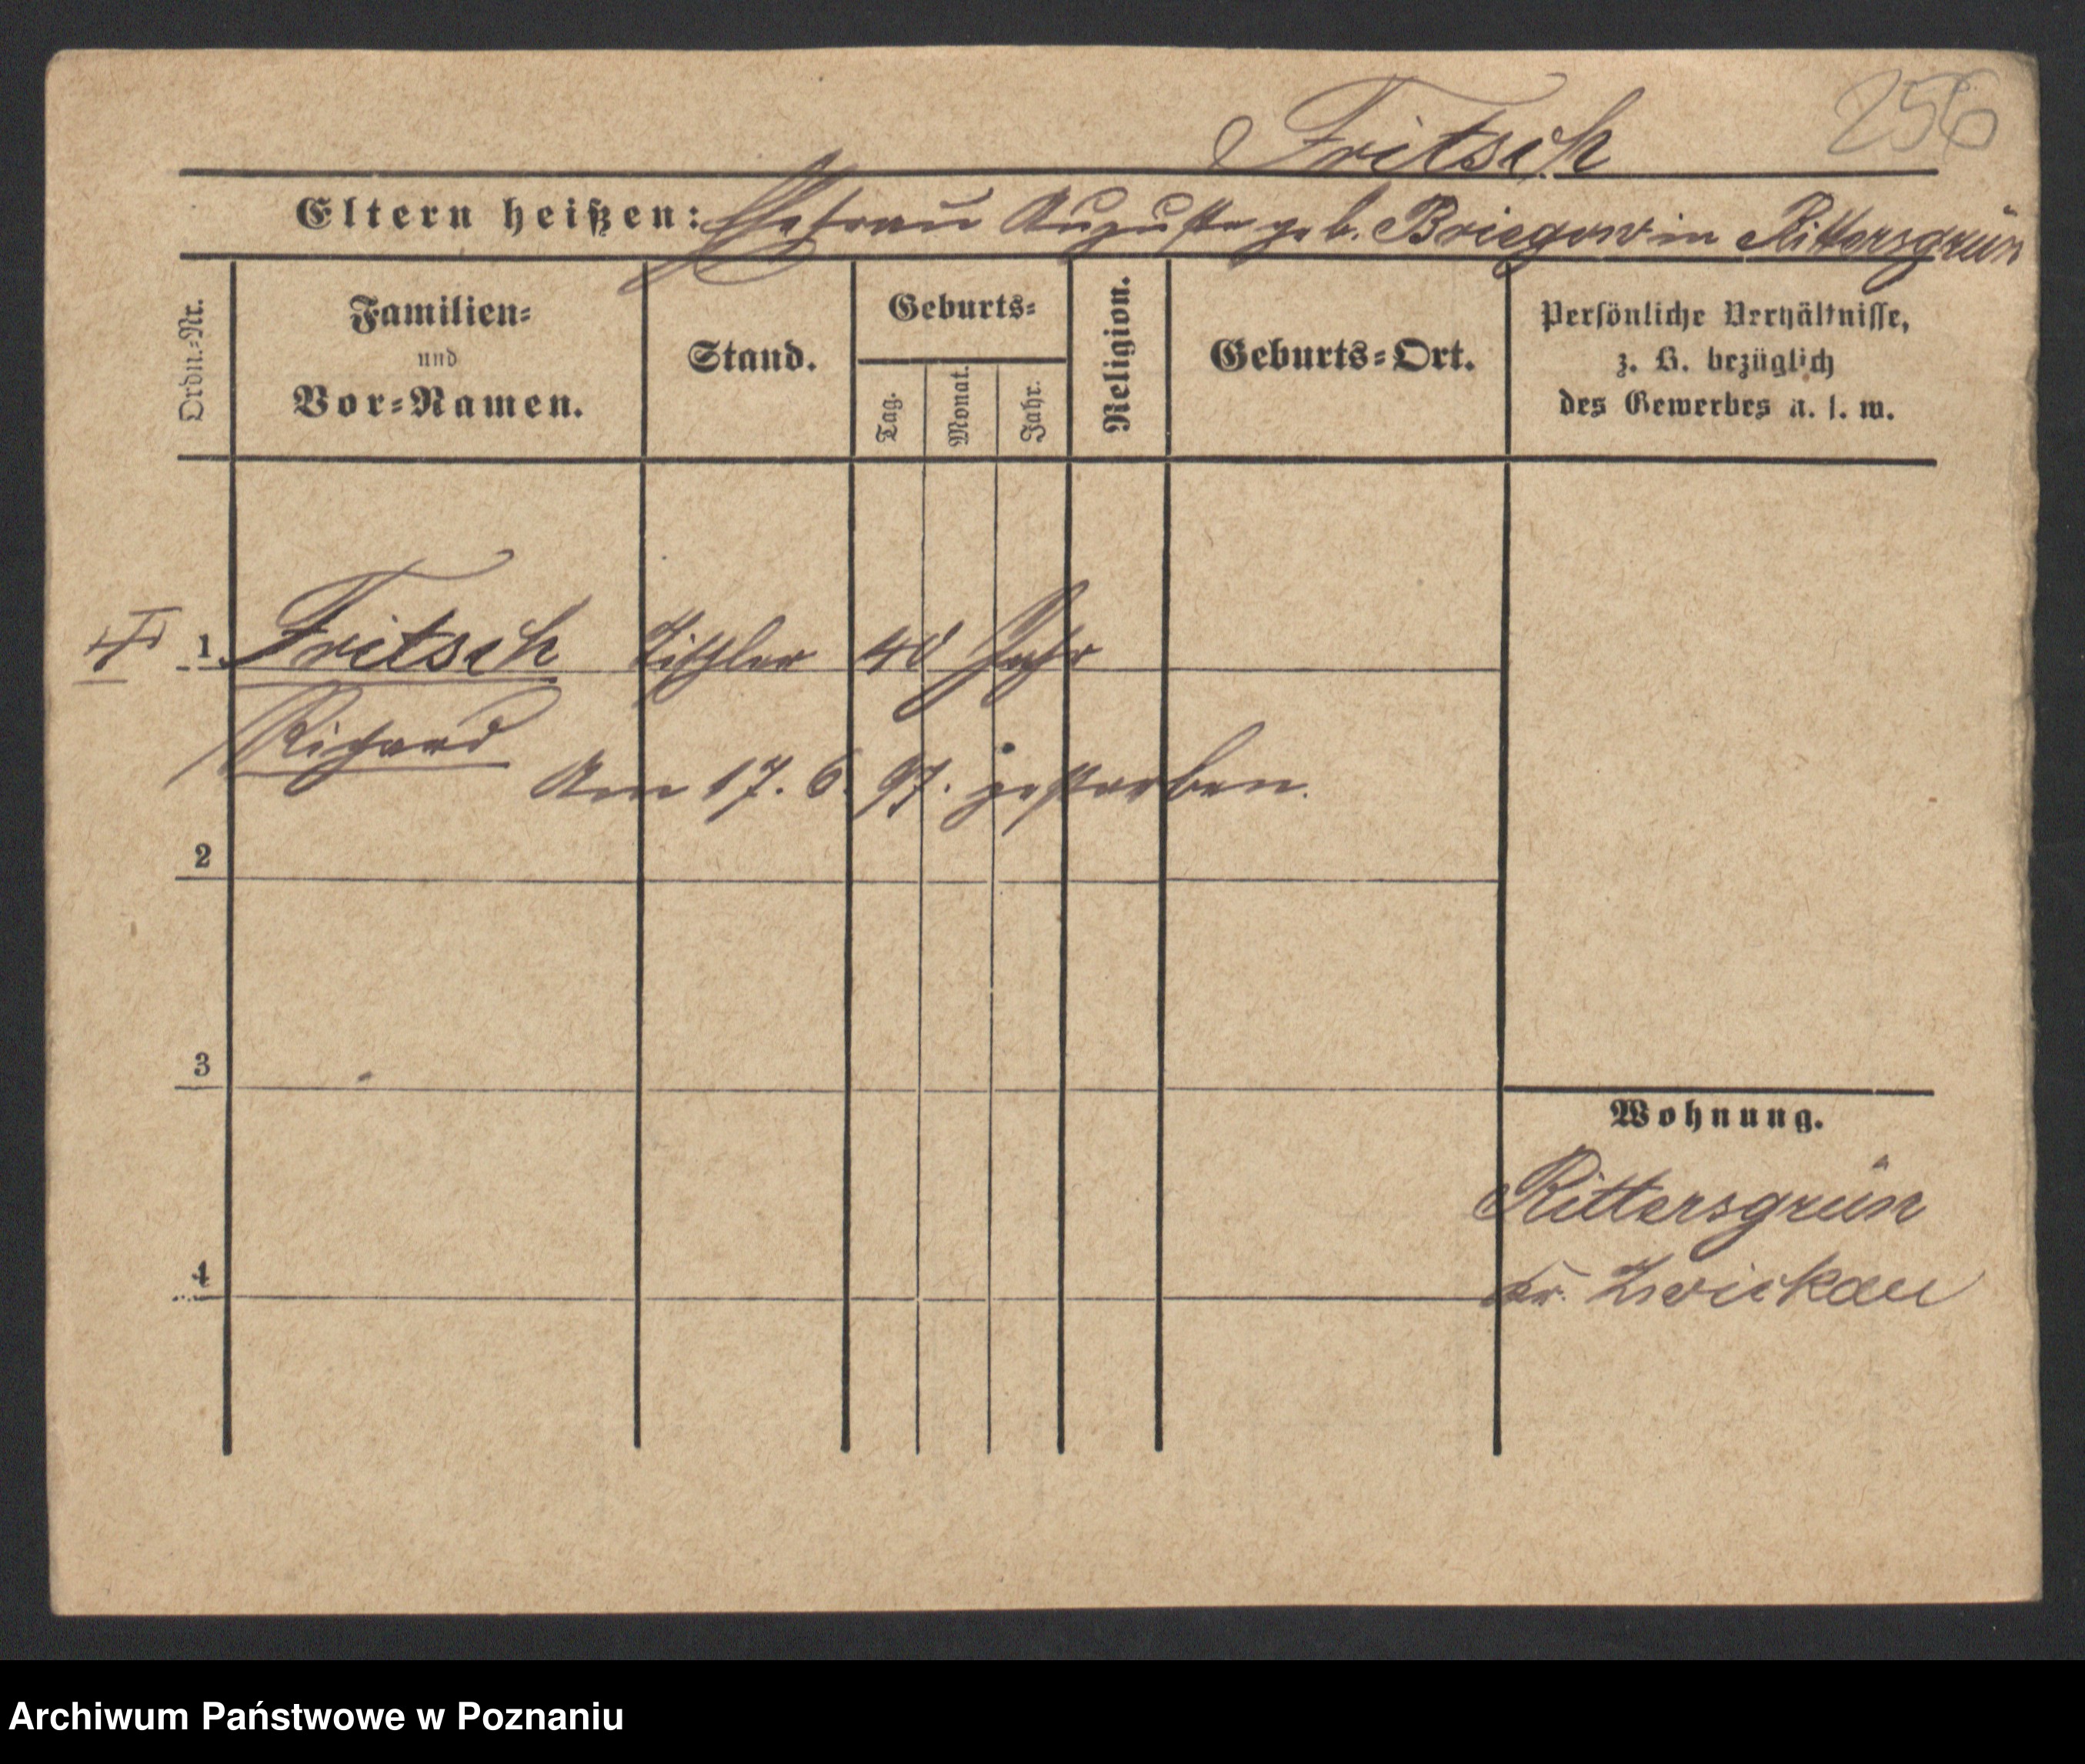 256
Fritsch
Eltern heißen: Ehefrau Auguste geb. Briegow in Rittersgrün
Ordn.-Nr.
Familien-
und
Vor-Namen.
Stand.
Geburts-
Tag.
Monat.
Jahr.
Religion.
Geburts-Ort.
Persönliche Verhältnisse,
z. B. bezüglich
des Gewerbes u. s. w.
1 Fritsch Tischler 40 Jahr
Richard
Am 17. 6. 97. gestorben.
2
3
Wohnung.
Rittersgrün
4
Kr. Zwickau
Archiwum Państwowe w Poznaniu